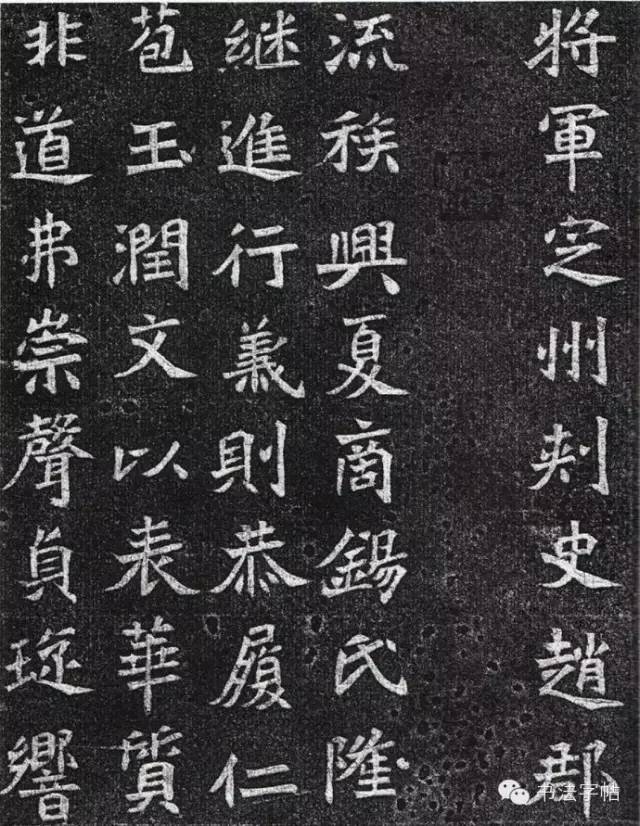 將軍定州刾史趙郡
流移興夏商錫氏隆
継進行義則恭履仁
苞玉潤文以表華質
非道弗崇聲貞琁響
书法字帖